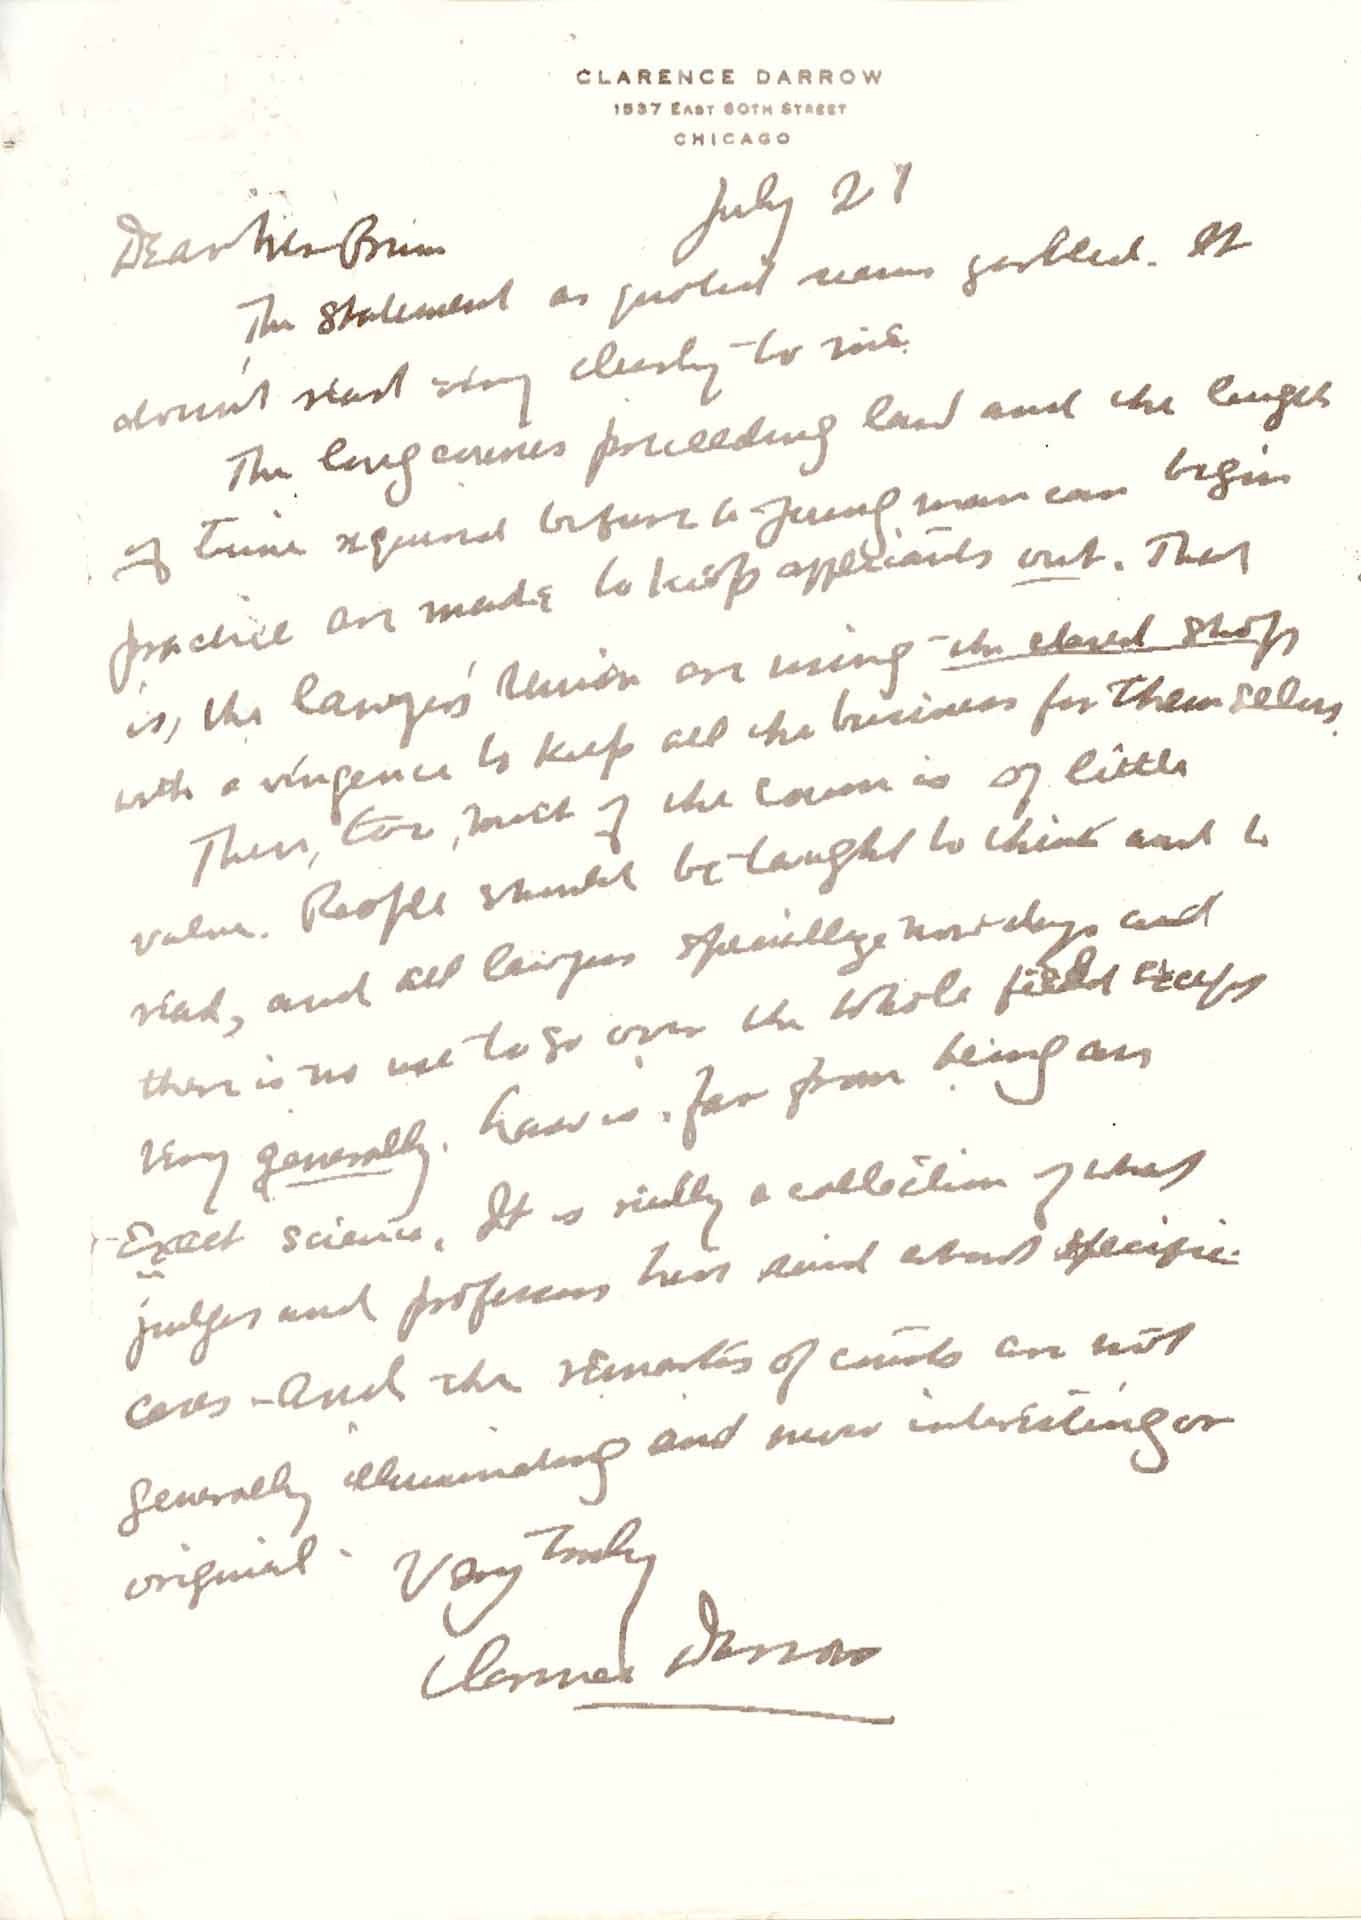 CLARENCE DARROW
1537 EAST 60TH STREET
CHICAGO
July 27
Dear Mr
The statement as quoted seems garbled. It
doesn't read very clearly to me.
The long courses preceeding law and the length
of time required before a young man can begin
practice are made to keep applicants out. That
is, the lawyers' Union are using the closed shop
with a vengence to keep all the business for themselves.
Then, too, much of the course is of little
value. People should be taught to think and to
read, and all lawyers specialize now-days and
there is no use to go over the whole field except
very generally. Law is far from being an
exact science. It is really a collection of what
judges and professors have said about specific
cases - And the remarks of courts are not
generally illuminating and never interesting or
original.
Very truly
Clarence Darrow